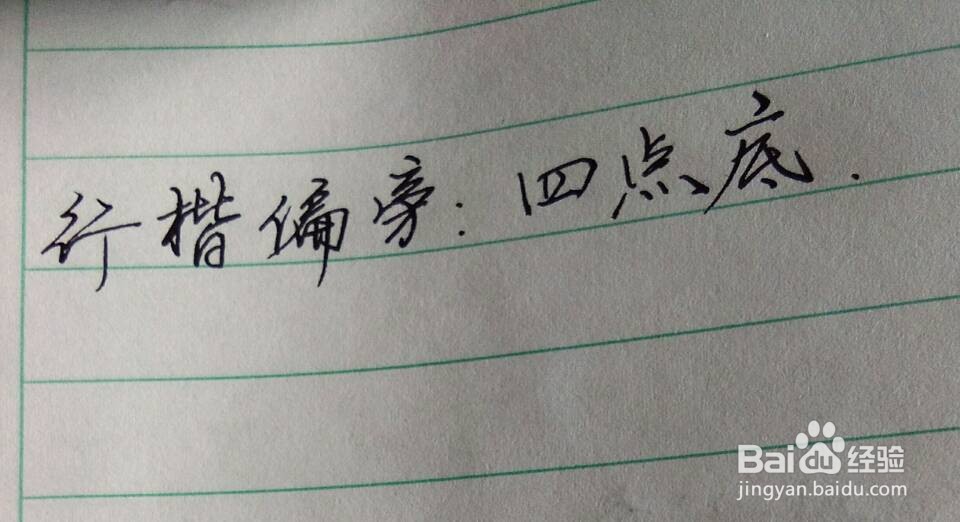 行楷偏旁:四点底.
Baidu经验
jingyan.baidu.com